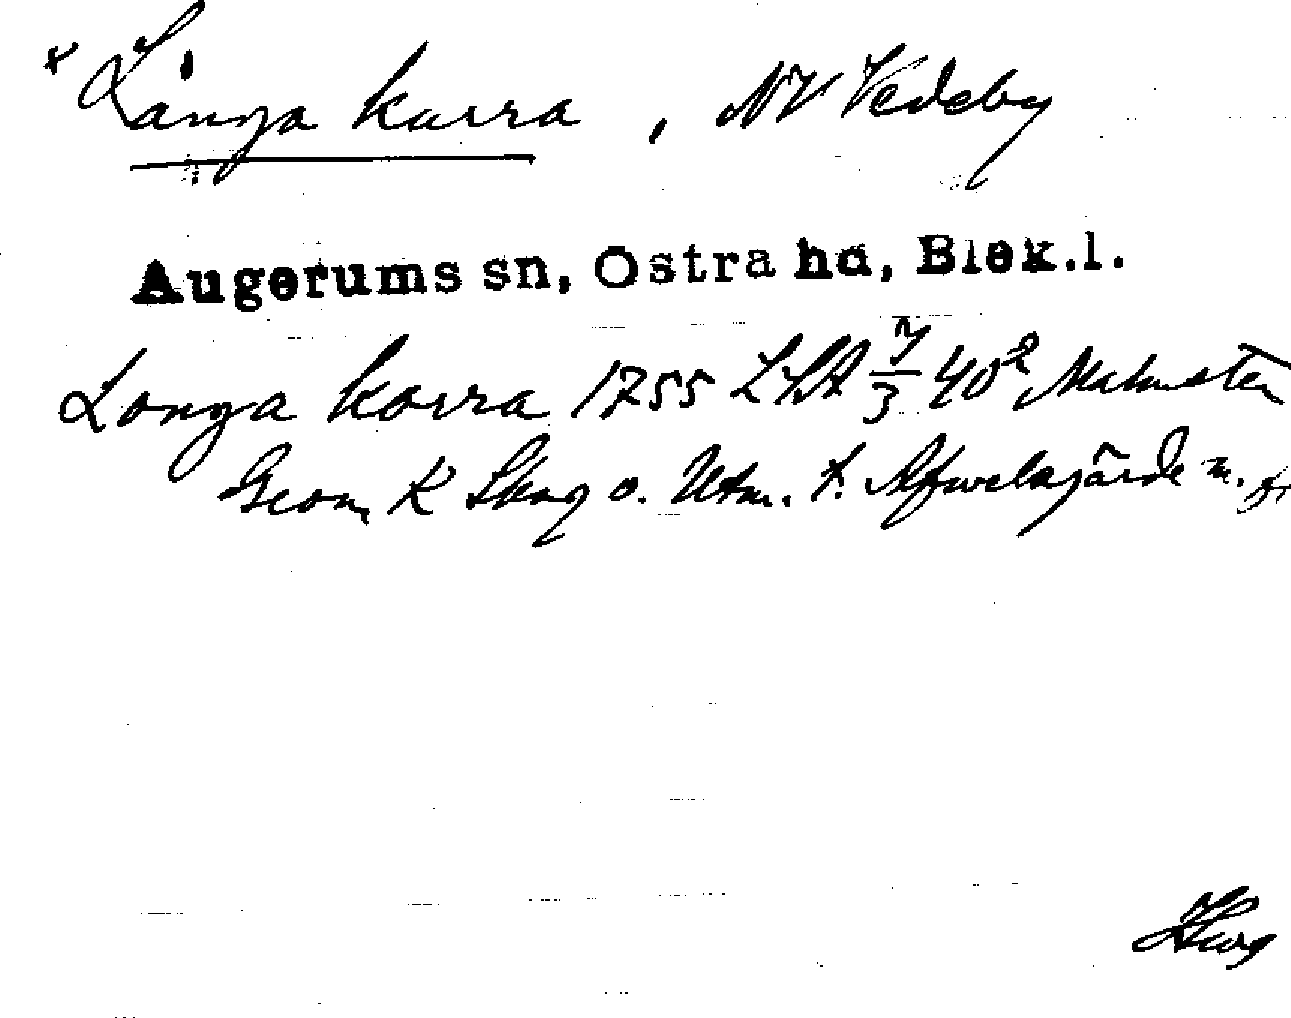 × Långa karra, NV Vedeby
Augerums sn, Östra hd, Blek.l.
Longa korra 1755 LSA 7/3 40² Malmsten
Geom K Skog o. Utm. t. Afwelsgärde m. fl